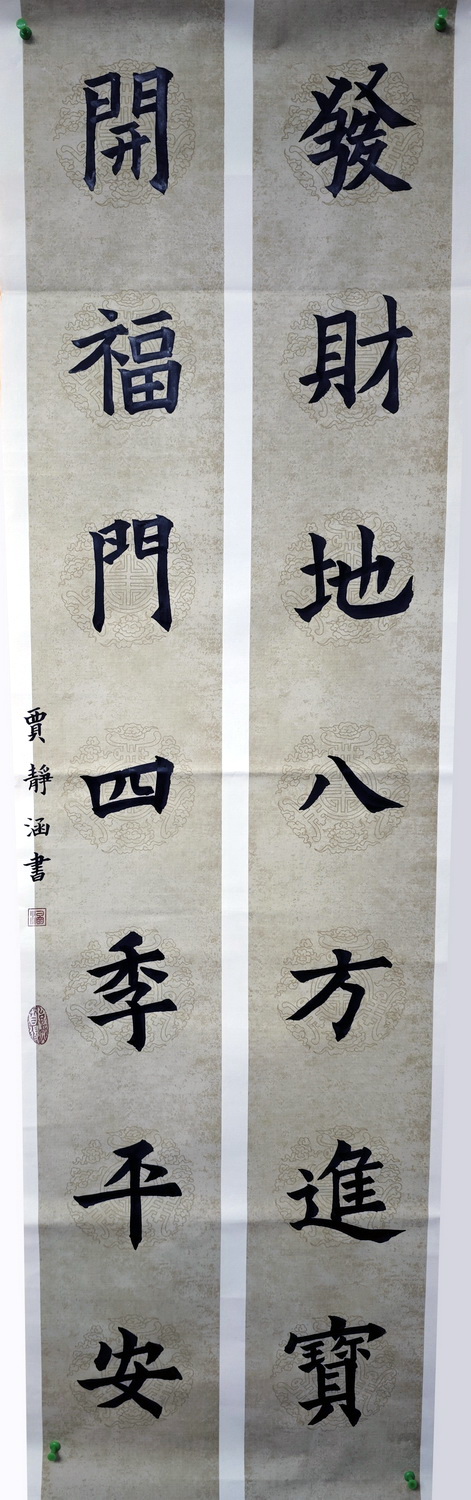 發財地八方進寶
開福門四季平安
賈靜涵書